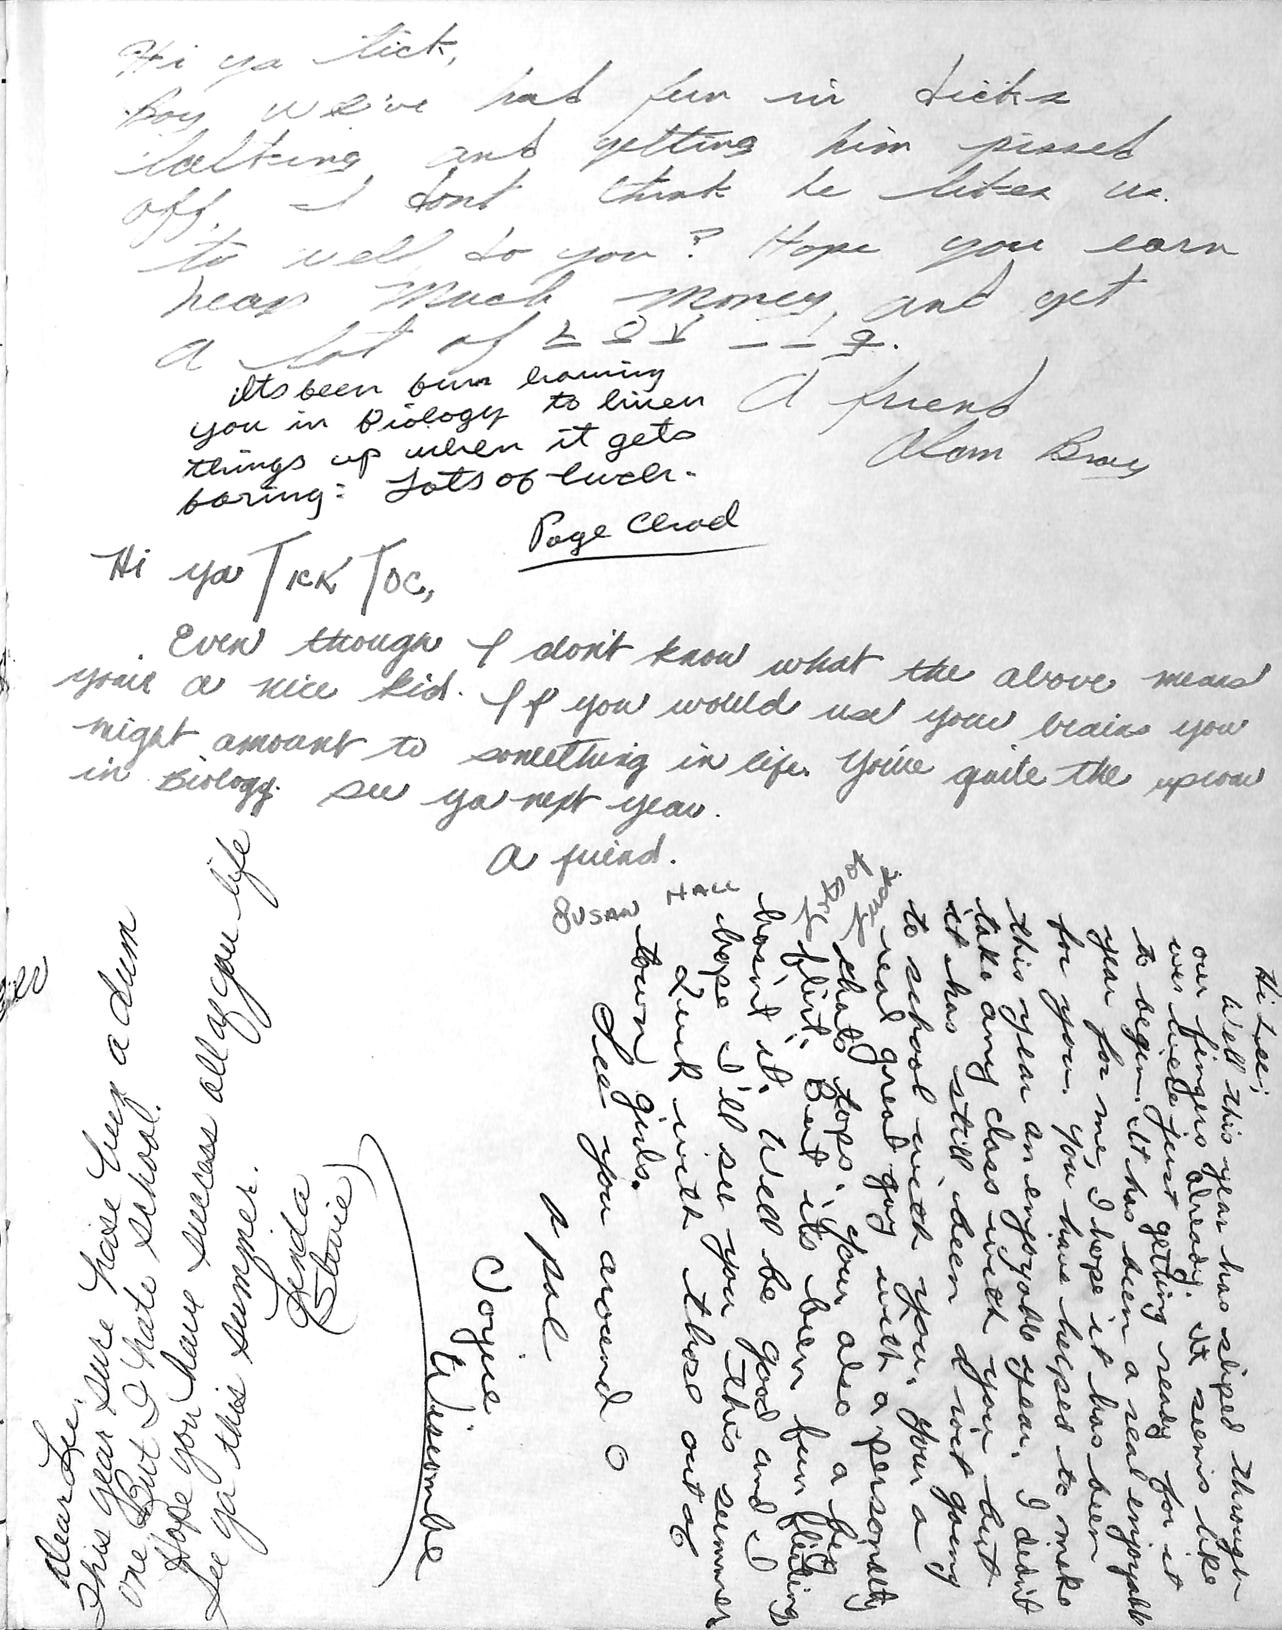 Hi ya tick,
Boy we've had fun in dicks
talking and getting him pissed
off. I dont think he likes us
to well do you? Hope you earn
heap much money and get
a lot of L O V _ _ 9.
A friend
Alan Bray
its been fun having
you in Biology to liven
things up when it gets
boring: Lots of luck.
Page Clrod
Hi ya Tick Toc,
Even though I don't know what the above means
your a nice kid. If you would use your brains you
might amount to something in life. You're quite the uproar
in Biology. See ya next year.
A friend.
Susan Hall
Lots of
luck
Hi Lee;
Well this year has sliped through
our fingers already. It seems like
we were just getting ready for it
to begin. It has been a real enjoyable
year for me, I hope it has been
for you. You have helped to make
this year an enjoyable year. I didn't
take any class with you but
it has still been swit going
to school with you. Your a
real great guy with a personality
thats tops. Your also a big
flirt. But its been fun flirting
hasn't it. Well be good and I
hope I'll see you this summer
Luck with those out a
town girls.
See you around
A pal
Joyce
Wiscombe
Dear Lee,
This year sure hase been a dum
one But I hate school.
Hope you have success all of you life
See ya this summer.
Linda